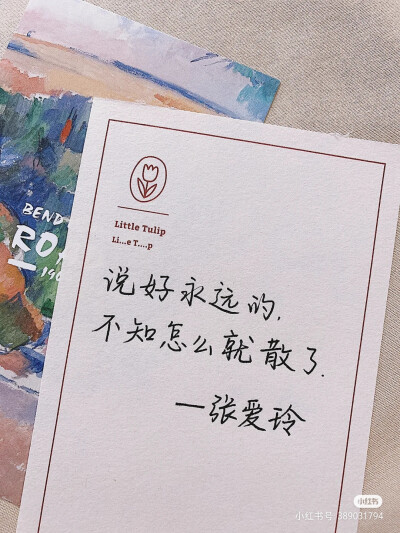 BEND
RO
190
Little Tulip
Li...e T....p
说好永远的,
不知怎么就散了.
一张爱玲
小红书
小红书号:389031794